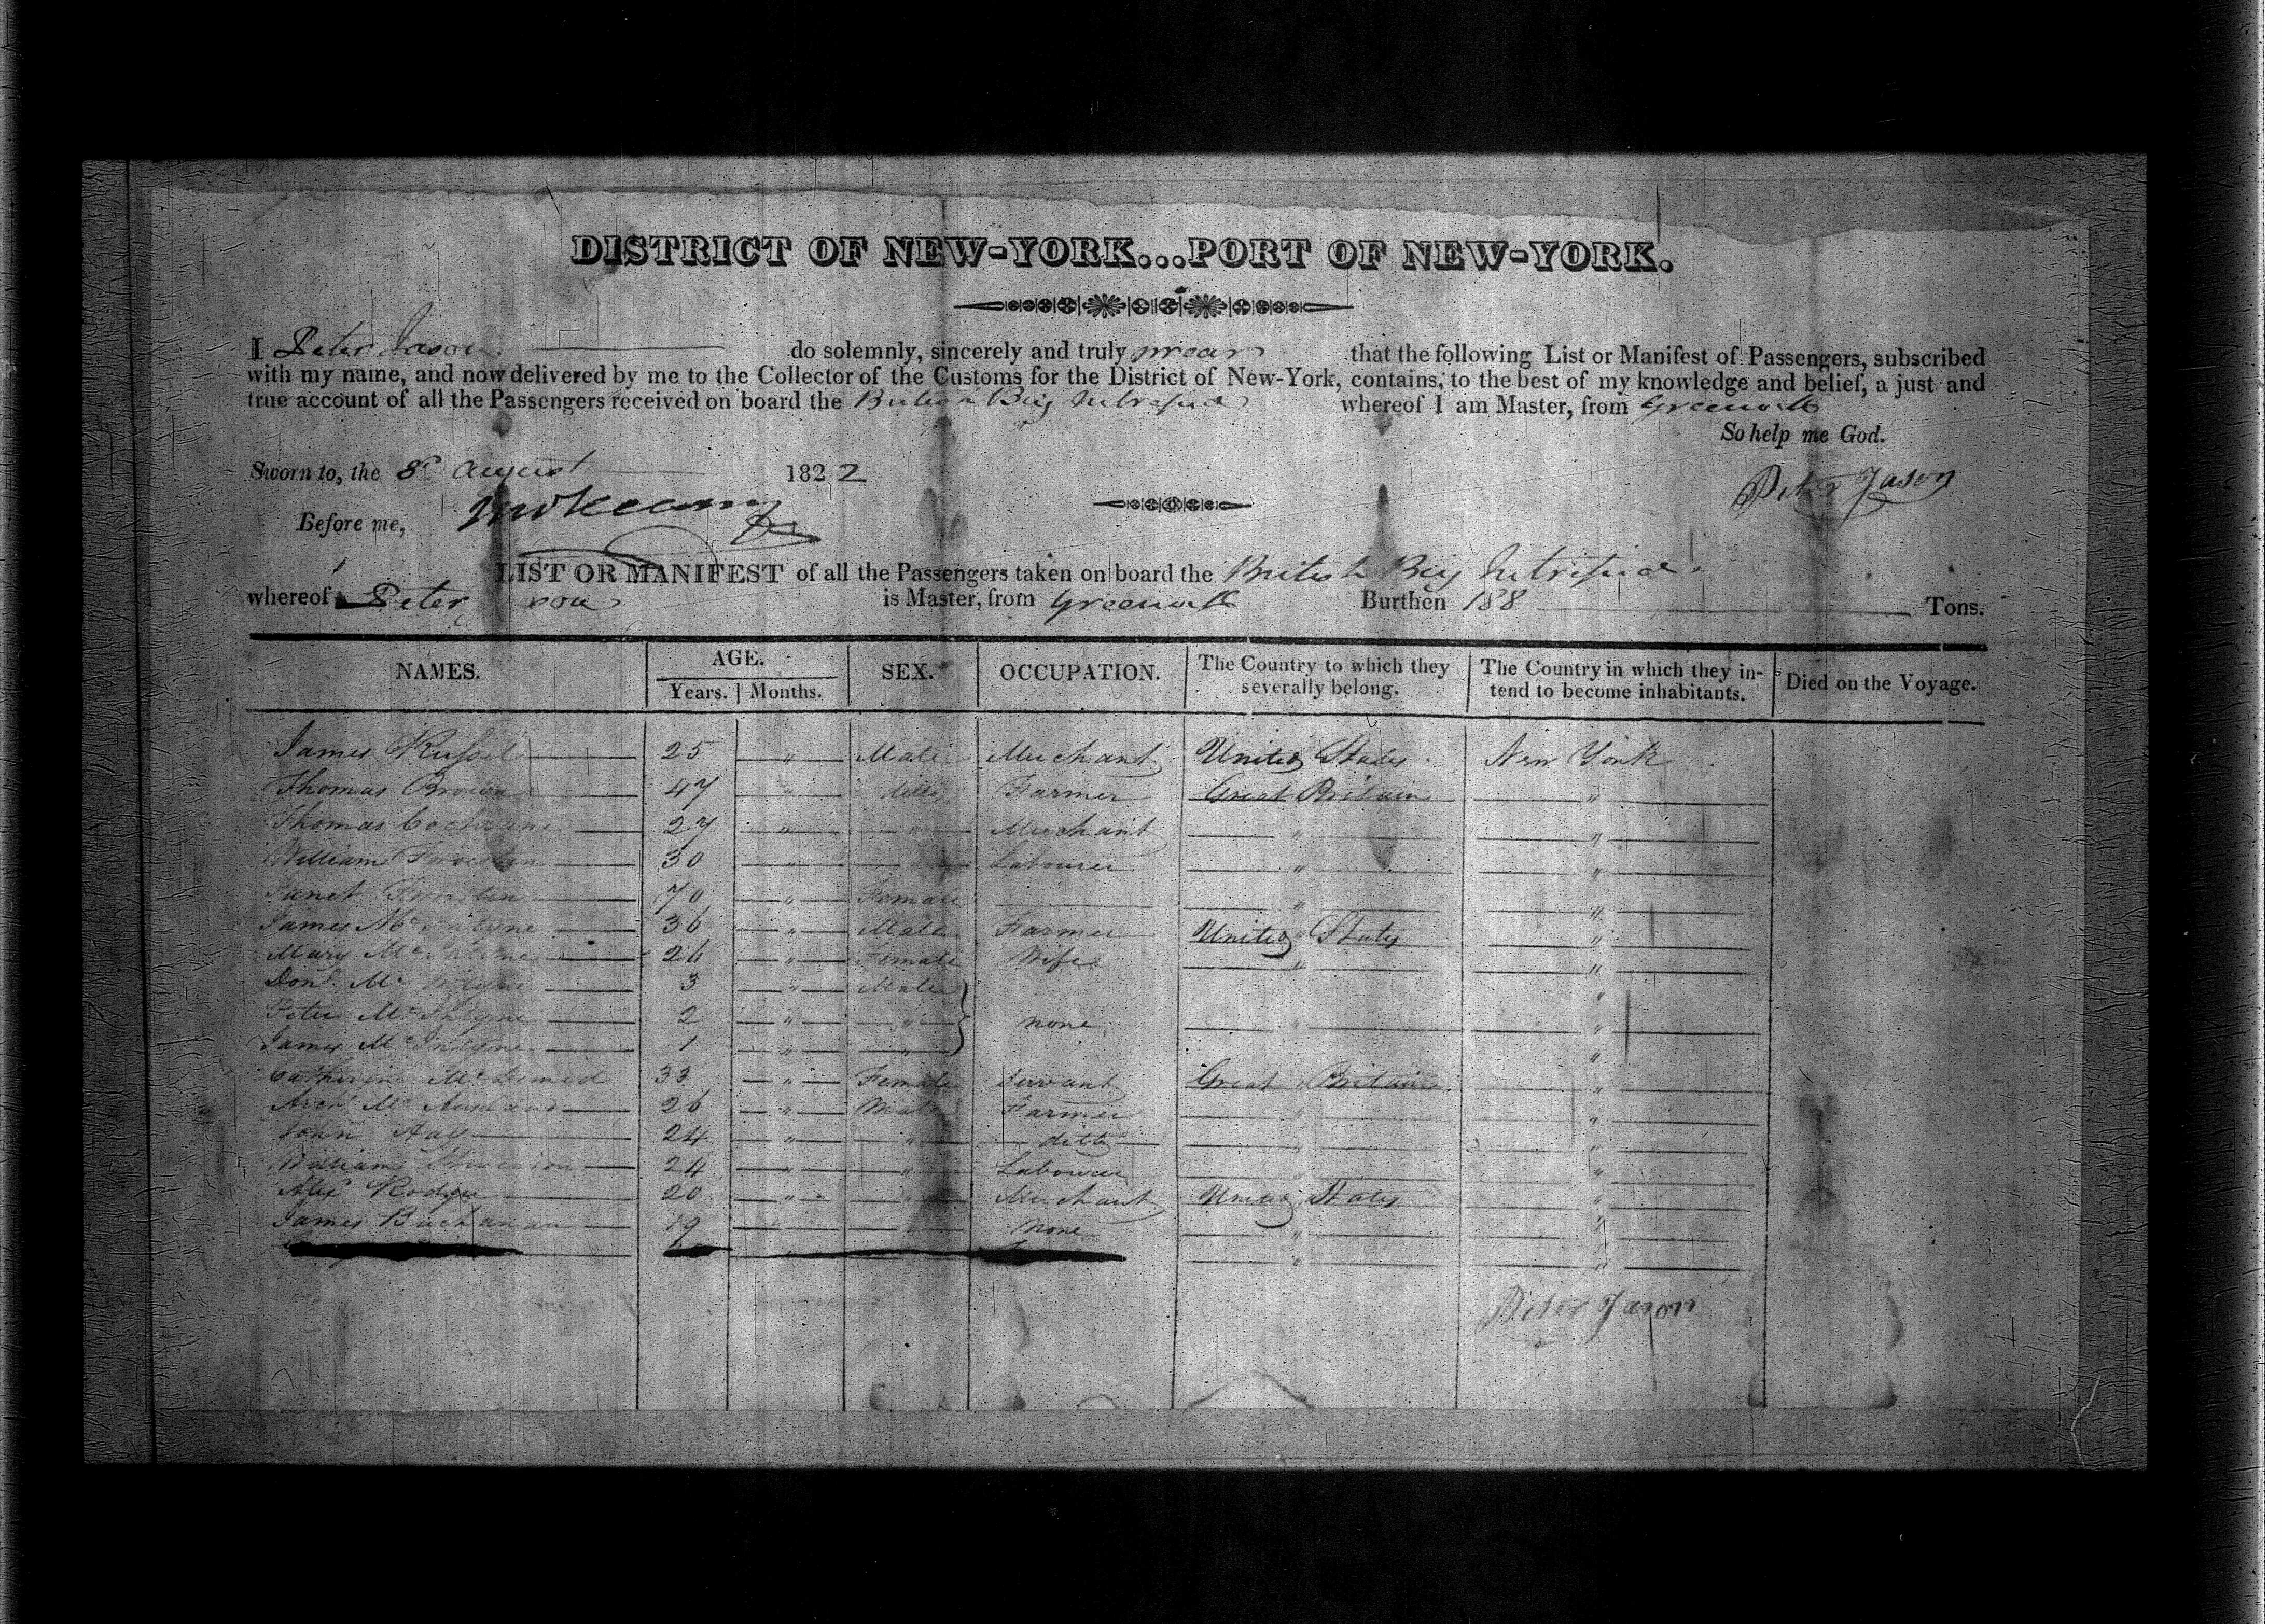 DISTRICT OF NEW-YORK...PORT OF NEW-YORK.
I Peter Jason do solemnly, sincerely and truly swear that the following List or Manifest of Passengers, subscribed
with my name, and now delivered by me to the Collector of the Customs for the District of New-York, contains, to the best of my knowledge and belief, a just and
true account of all the Passengers received on board the British Brig Intrepid whereof I am Master, from Greenock
So help me God.
Sworn to, the 8th August 1822
Peter Jason
Before me,
LIST OR MANIFEST of all the Passengers taken on board the British Brig Intrepid
whereof Peter is Master, from Greenock Burthen 188 Tons.
NAMES. AGE. SEX. OCCUPATION. The Country to which they severally belong. The Country in which they intend to become inhabitants. Died on the Voyage.
Years. Months.
James Russel 25 " Male Merchant United States New York
Thomas Brown 47 " ditto Farmer Great Britain "
Thomas Cochrane 27 " " Merchant " "
William 30 " " Labourer " "
Janet 70 " Female " "
James McIntyre 36 " Male Farmer United States "
Mary McIntyre 26 " Female Wife " "
Dond. McIntyre 3 " Male "
Peter McIntyre 2 " " none " "
James McIntyre 1 " " "
Catherine 33 " Female Servant Great Britain "
Archd. Mc 26 " Male Farmer " "
John Hay 24 " " ditto " "
William 24 " " Labourer " "
Alexr Rodger 20 " " Merchant United States "
James Buchanan 19 " " none " "
" "
Peter Jason